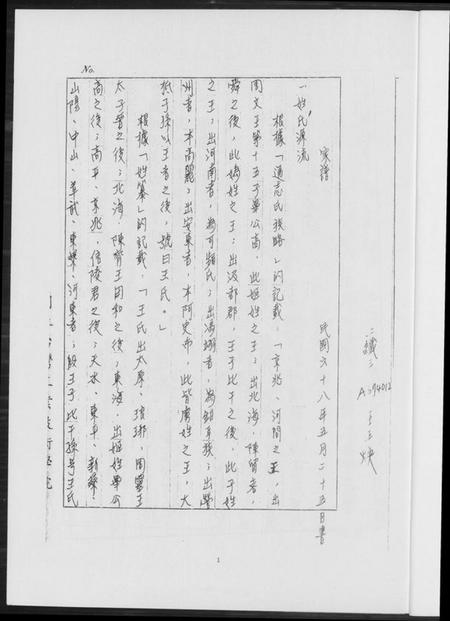 二讖三 A:074012 王玉煥
家譜 民國六十八年五月二十五日書
一姓氏源流
根據「通志氏族略」的記載，「京兆、河間之王，出
周文王第十五子畢公高，此姬姓之王；出北海、陳留者，
舜之後，此媯姓之王；出汲郡郡，王子比干之後，此子姓
之王；出河南者，為可頻氏；出馮翊者，為鉗耳族；出營
州者，本高麗；出安東者，本阿史布，此皆虜姓之王，大
抵子孫以王者之後，號曰王氏。」
根據「姓纂」的記載，「王氏出太原、瑯琊，周靈王
太子晉之後；北海、陳留王田和之後；東海，出姬姓畢公
高之後；高平、京兆，信陵君之後；天水、東平、新蔡、
山陽、中山、章武、東萊、河東者；殷王子比干孫号王氏
No.
1